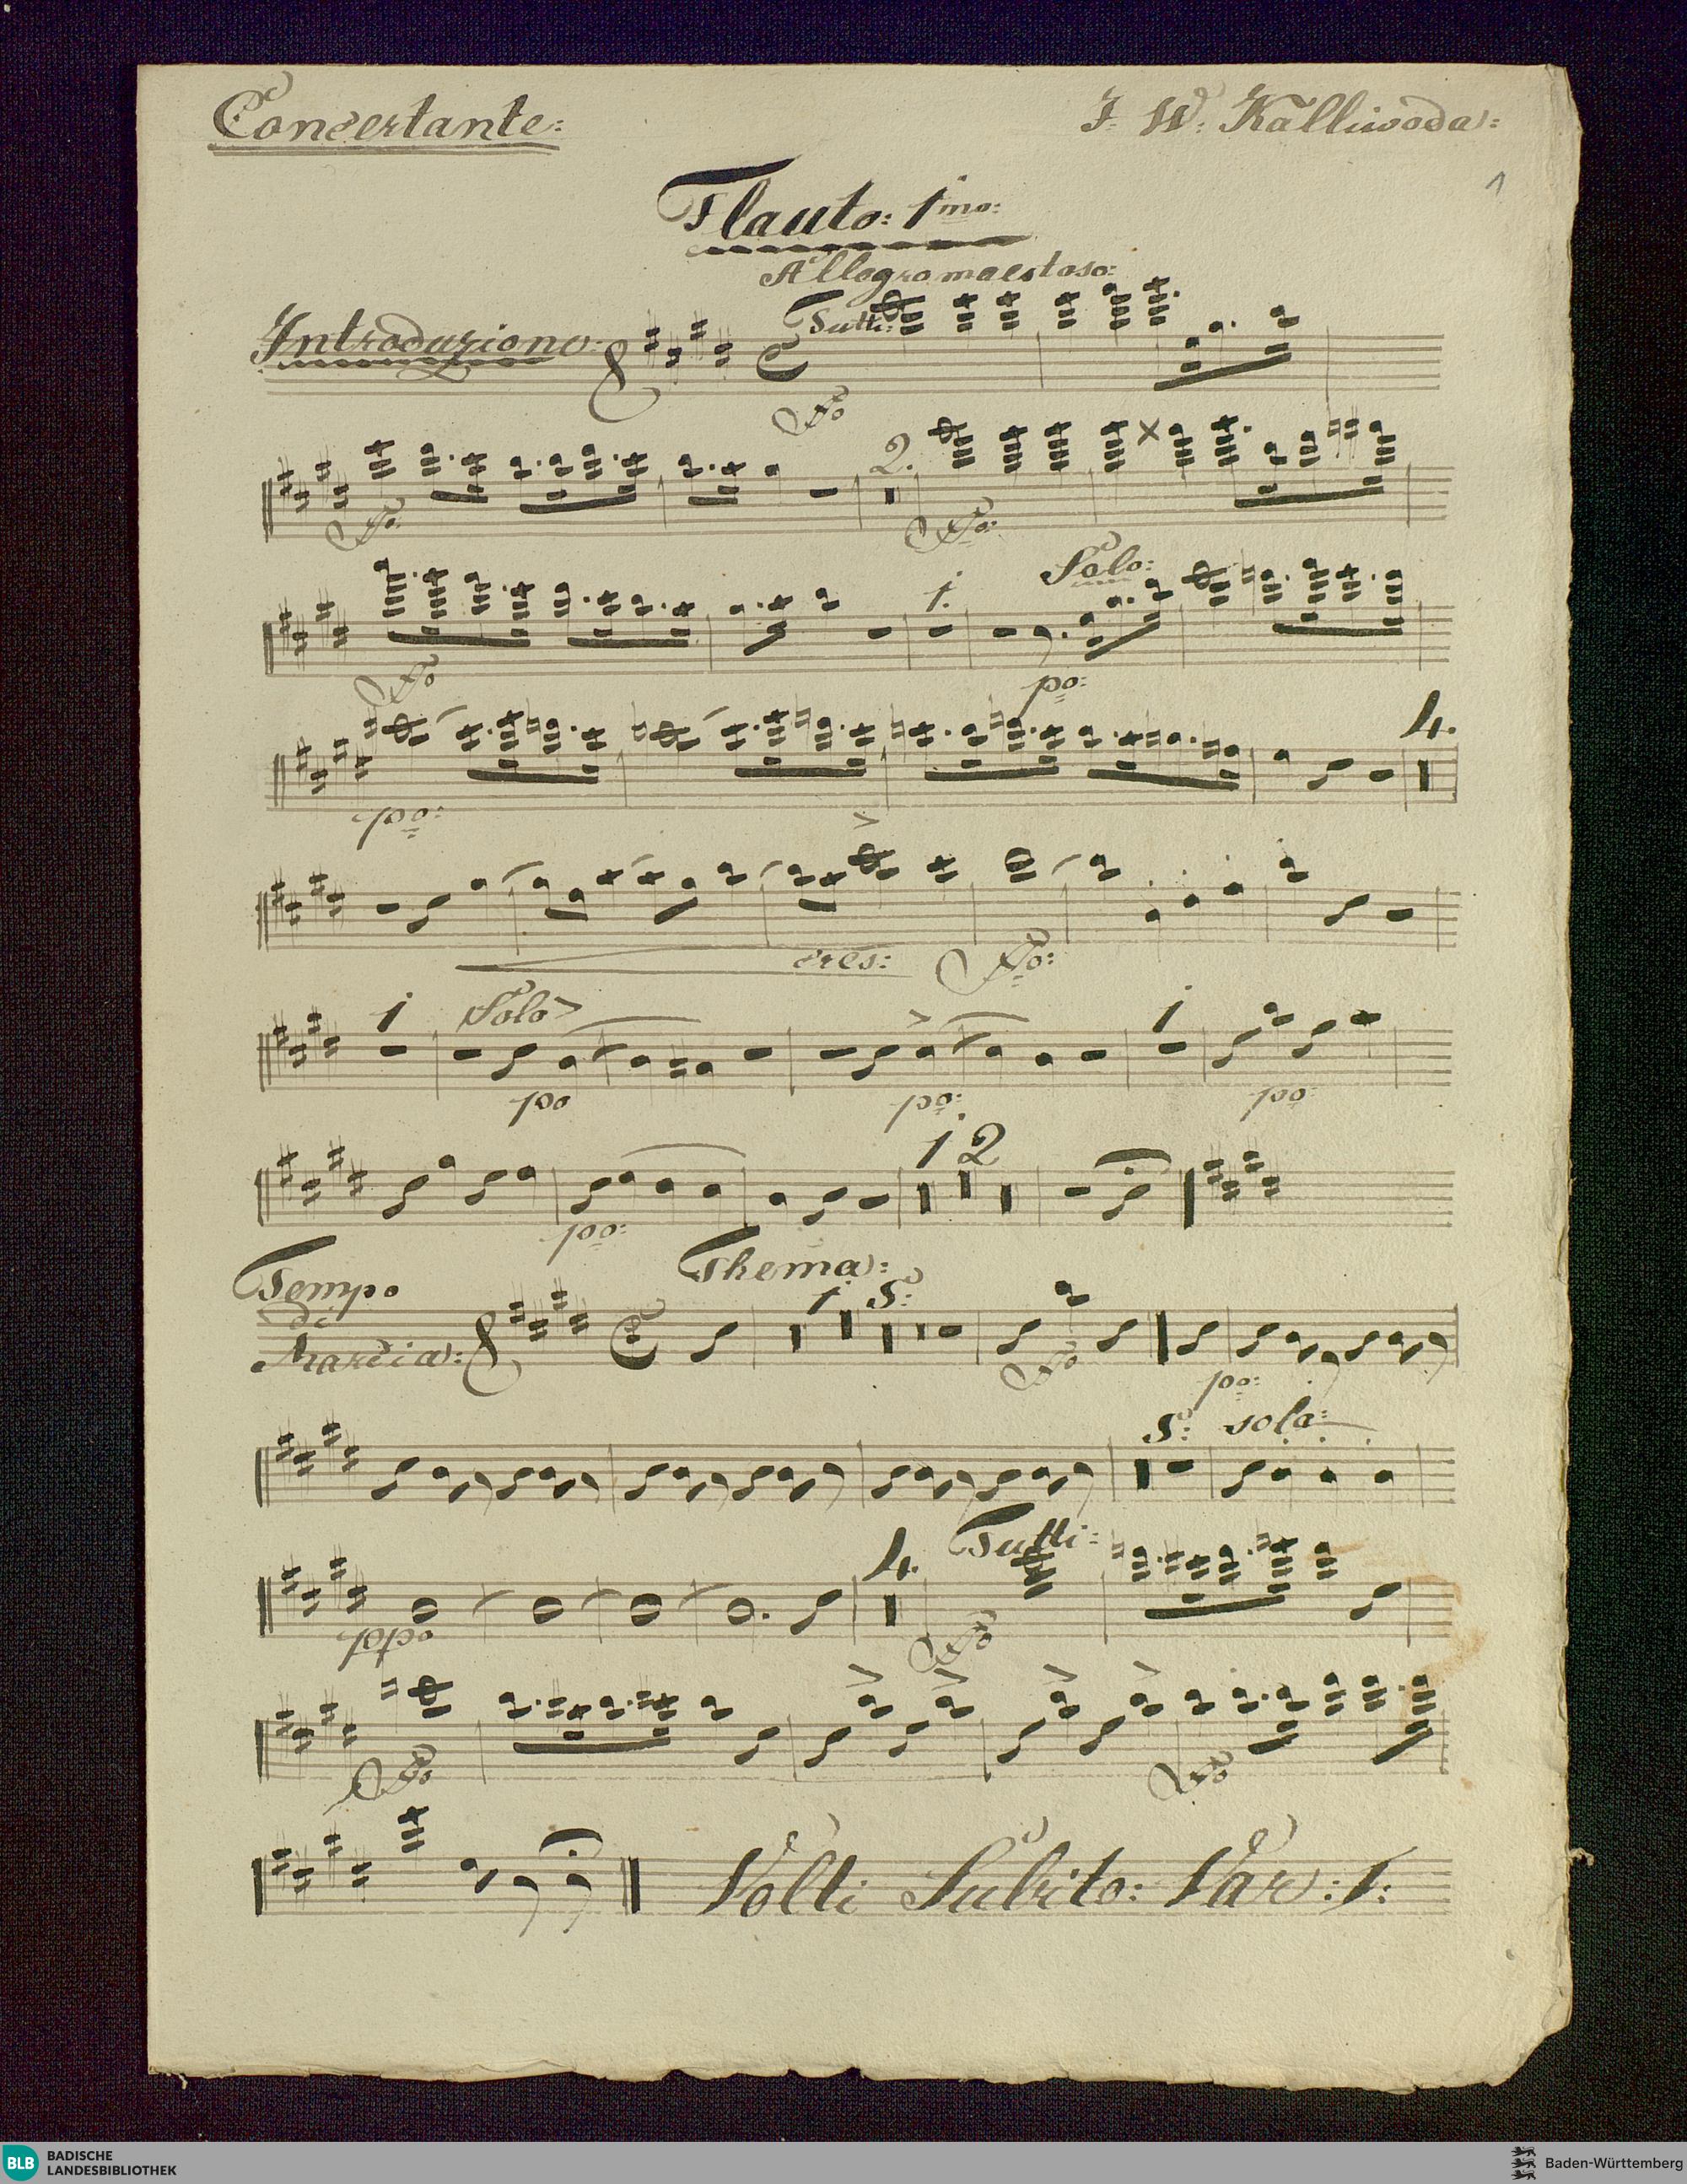 Concertante:
J. W: Kalliwoda:
1
Flauto: 1mo:
Allegro maestoso:
Introduzione: Tutti:
Fo
2.
Fo: Fo:
1. Solo:
Fo po:
4.
po:
cres: Fo:
1 Solo 1
po po: po:
1 2
po:
Tempo di Marcia: Thema:
1 8:
Fo po:
8: sola:
4. Tutti:
ppo Fo
Fo Fo
Volti Subito: Var: 1:
BLB BADISCHE
LANDESBIBLIOTHEK
Baden-Württemberg